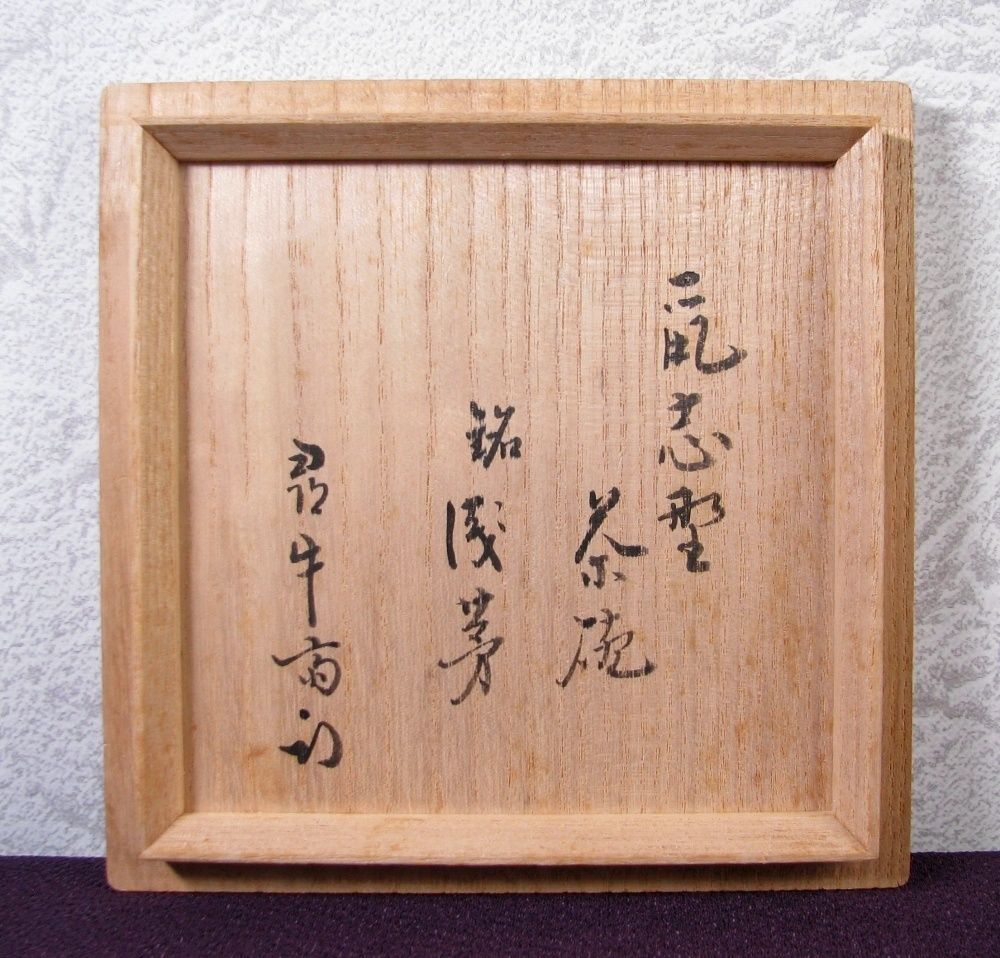 鼠志野
茶碗
銘 浅茅
尋牛斎